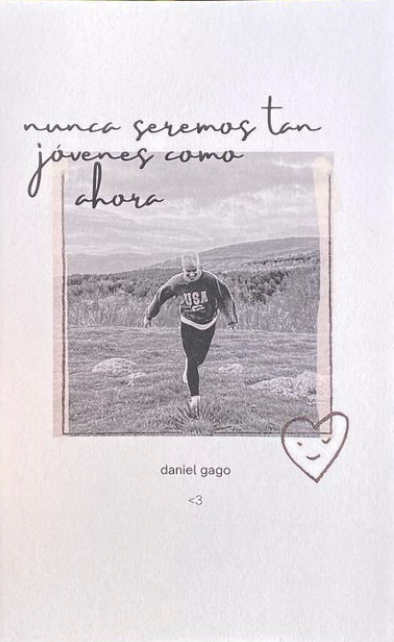 nunca seremos tan
jóvenes como
ahora
USA
daniel gago
<3